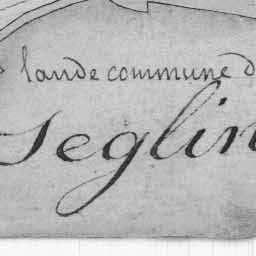 lande commune d
Seglin